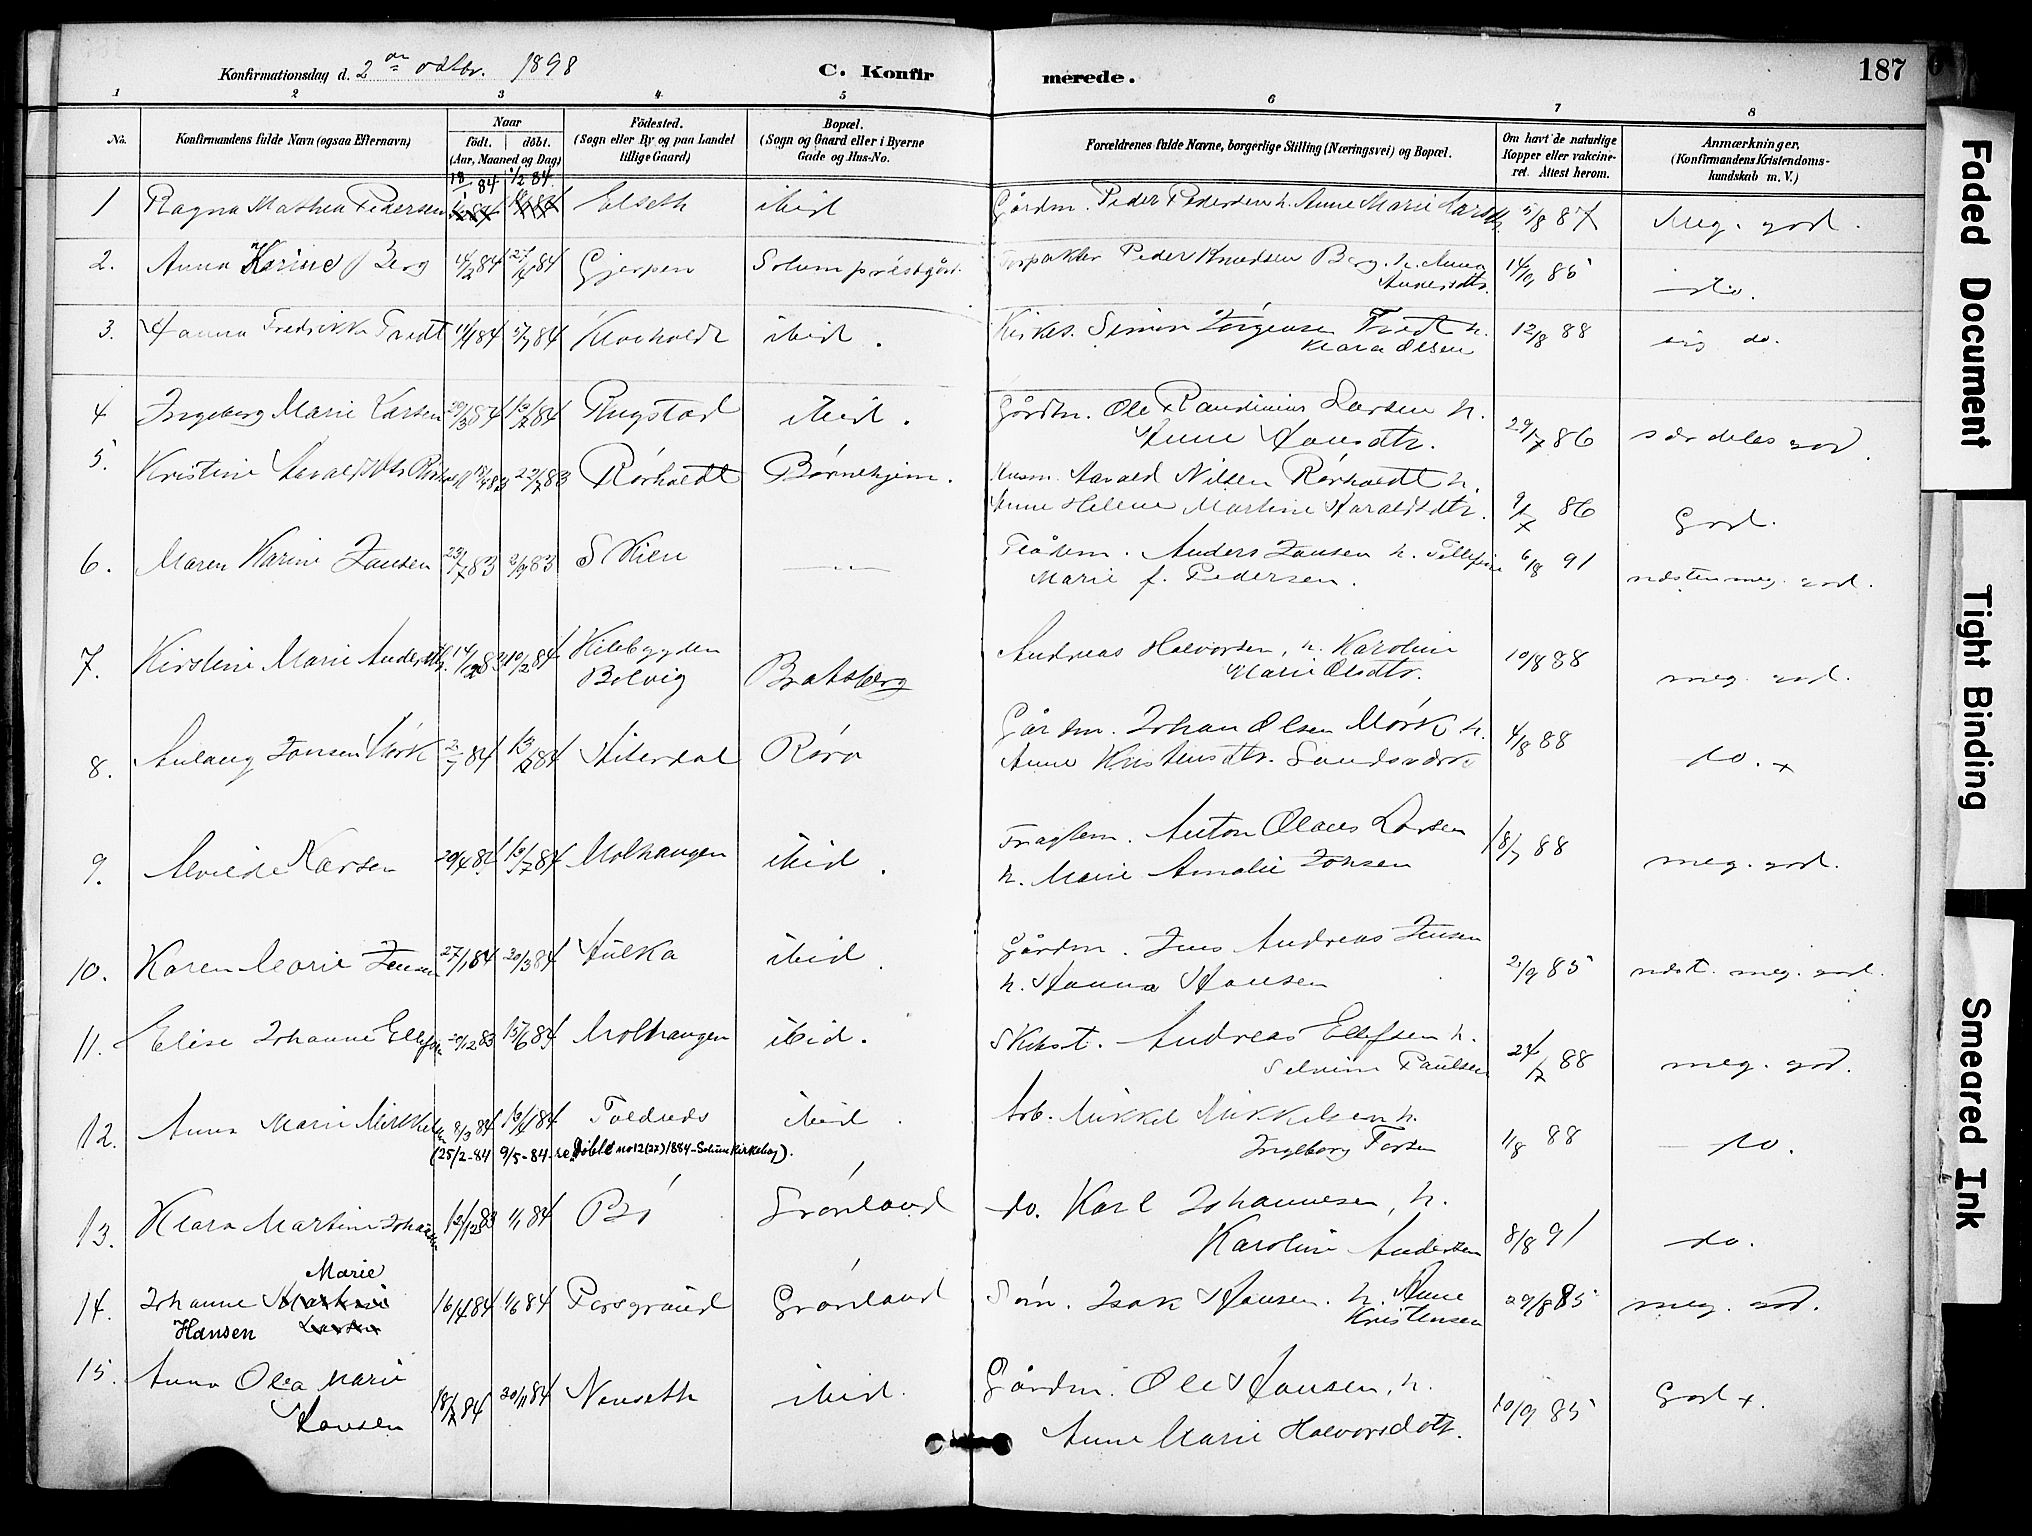 Konfirmationsdag d. 2den oktbr. 1898 C. Konfirmerede. 187
1 2 3 4 5 6 7 8
No. Konfirmandens fulde Navn (ogsaa Efternavn) Naar født. døbt. (Aar, Maaned og Dag) Fødested. (Sogn eller By og paa Landet tillige Gaard) Bopæl. (Sogn og Gaard eller i Byerne Gade og Hus-No. Forældrenes fulde Navne, borgerlige Stilling (Næringsvei) og Bopæl. Om havt de naturlige Kopper eller vakcineret. Attest herom. Anmærkninger, (Konfirmandens Kristendomskundskab m. V.)
1 Ragna Mathea Pedersen 18/1 84 1/2 84 Elseth ibid Gårdm. Peder Pedersen h. Anne Marie Larsdtr. 5/8 87 Meg. god.
2. Anna Karine Berg 14/2 84 27/4 84 Gjerpen Solum prestegård. Forpakter Peder Knudsen Berg. h. Anna Andersdtr. 14/10 85 do.
3. Hanna Fredrikke Tredt 11/4 84 5/7 84 Kloholdt ibid. Kirkes. Simon Jørgensen Tredt h. Klara Olsen 12/8 88 do.
4 Ingeborg Marie Larsen 29/3 84 13/7 84 Rugstad ibid. Gårdm. Ole Randinius Larsen h. Anne Hansdtr. 29/7 86 særdeles god.
5. Kristine 22/7 83 Rørholdt Børnehjem. Husm. Harald Nilsen Rørholdt h. Anne Helene Martine Haraldsdtr. 9/7 86 God.
6. Maren Karine Jansen 23/7 83 2/9 83 Skien — Flåtem. Anders Jansen h. Tellefine Marie f. Pedersen. 6/8 91 næsten meg. god.
7. Kirstine Marie Andersdtr. 14/12 83 10/2 84 Kilebygden Bolvig Bratsberg Andreas Halvorsen, h. Karoline Marie Olsdtr. 10/8 88 meg. god.
8. Aslaug Jonsen Mørk 84 13/7 84 Hiterdal Røra Gårdm. Johan Olsen Mørk h. Anne Kristensdtr. Sandsvær 4/8 88 do. +
9. Alvilde Larsen 29/4 84 13/7 84 Molhaugen ibid. Fragtem. Anton Olaus Larsen h. Marie Amalie Johsen 18/7 88 meg. god.
10. Karen Marie Jensen 27/1 84 20/3 84 Hulka ibid. Gårdm. Jens Andreas Jensen h. Hanna Hansen 2/9 85 næst. meg. god.
11. Elise Johanne Ellefsen 29/12 83 15/6 84 Molhaugen ibid. Skibst. Andreas Ellefsen h. Selvine Paulsen 24/7 88 meg. god.
12. Anna Marie Mikkelsen 8/3 84 13/4 84 Foldsæds ibid. Arb. Mikkel Mikkelsen h. Ingeborg 1/8 88 — do.
(25/2-84 9/5-84 - se Døbte no 12 (27) 1884 - Solum Kirkebog).
13. Klara Martine Johannesen 12/12 83 1/1 84 Bø Grønland do. Karl Johannesen, h. Karoline Andersen 8/8 91 do.
14. Johanne Marie Hansen 16/4 84 1/6 84 Porsgrund Grønland Søm. Isak Hansen. h. Anne Kristensen 29/8 85 meg. god.
15. Anna Olea Marie Hansen 18/7 84 20/11 84 Nenseth ibid. Gårdm. Ole Hansen, h. Anne Marie Halvorsdotr. 10/9 85 God +.
Faded Document
Tight Binding
Smeared Ink